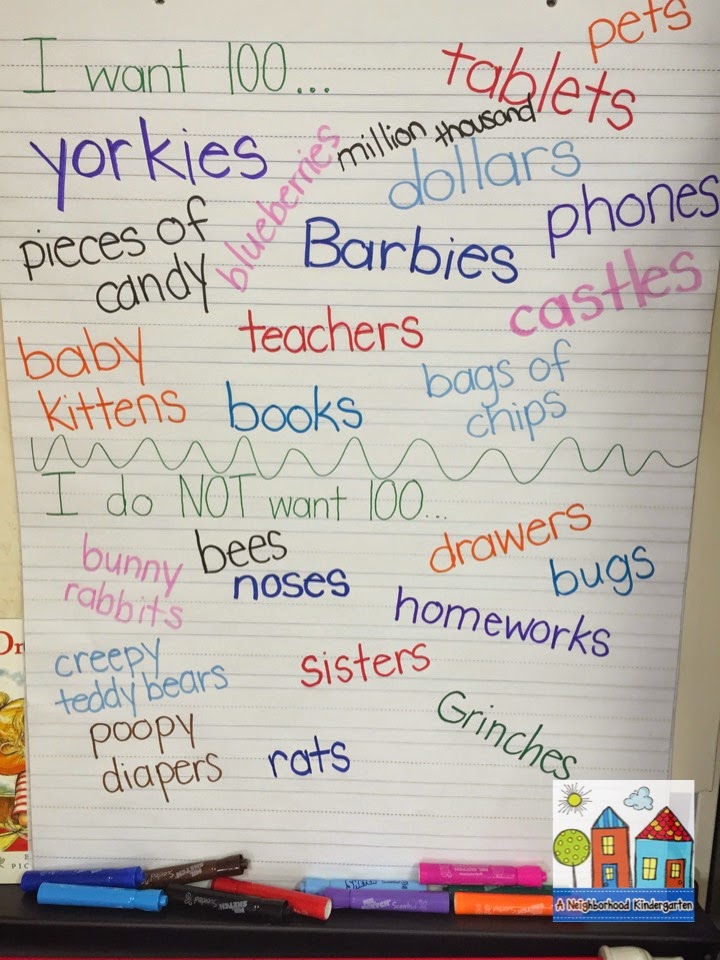 I want 100...
pets
tablets
yorkies
blueberries
million thousand
dollars
phones
pieces of
candy
Barbies
castles
baby
kittens
teachers
books
bags of
chips
I do NOT want 100...
bunny
rabbits
bees
noses
drawers
bugs
homeworks
creepy
teddy bears
sisters
Grinches
poopy
diapers
rats
A Neighborhood Kindergarten